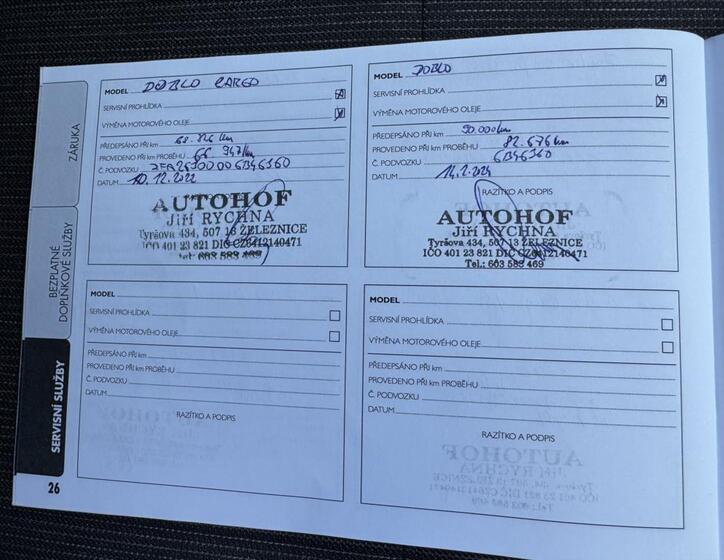 ZÁRUKA
BEZPLATNÉ
DOPLŇKOVÉ SLUŽBY
SERVISNÍ SLUŽBY
26
MODEL DOBLO CARGO
SERVISNÍ PROHLÍDKA
VÝMĚNA MOTOROVÉHO OLEJE
PŘEDEPSÁNO PŘI km 68.826 km
PROVEDENO PŘI km PROBĚHU 66.947 km
Č. PODVOZKU ZFA26300006B46360
DATUM 10.12.2022
AUTOHOF
Jiří RYCHNA
Tyršova 434, 507 13 ŽELEZNICE
IČO 401 23 821 DIČ CZ6412140471
tel: 603 583 469
MODEL DOBLO
SERVISNÍ PROHLÍDKA
VÝMĚNA MOTOROVÉHO OLEJE
PŘEDEPSÁNO PŘI km 90.000 km
PROVEDENO PŘI km PROBĚHU 82.676 km
Č. PODVOZKU 6B46360
DATUM 14.2.2024
RAZÍTKO A PODPIS
AUTOHOF
Jiří RYCHNA
Tyršova 434, 507 13 ŽELEZNICE
IČO 401 23 821 DIČ CZ6412140471
Tel.: 603 583 469
MODEL
SERVISNÍ PROHLÍDKA
VÝMĚNA MOTOROVÉHO OLEJE
PŘEDEPSÁNO PŘI km
PROVEDENO PŘI km PROBĚHU
Č. PODVOZKU
DATUM
RAZÍTKO A PODPIS
MODEL
SERVISNÍ PROHLÍDKA
VÝMĚNA MOTOROVÉHO OLEJE
PŘEDEPSÁNO PŘI km
PROVEDENO PŘI km PROBĚHU
Č. PODVOZKU
DATUM
RAZÍTKO A PODPIS